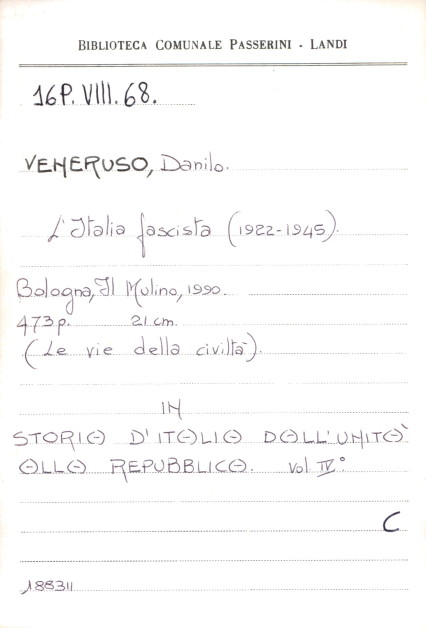 BIBLIOTECA COMUNALE PASSERINI - LANDI
16P. VIII. 68.
VENERUSO, Danilo.
L'Italia fascista (1922-1945).
Bologna, Il Mulino, 1990.
473 p. 21 cm.
(Le vie della civiltà).
IN
STORIA D'ITALIA DALL'UNITÀ
ALLA REPUBBLICA. vol. IV°
C
188311